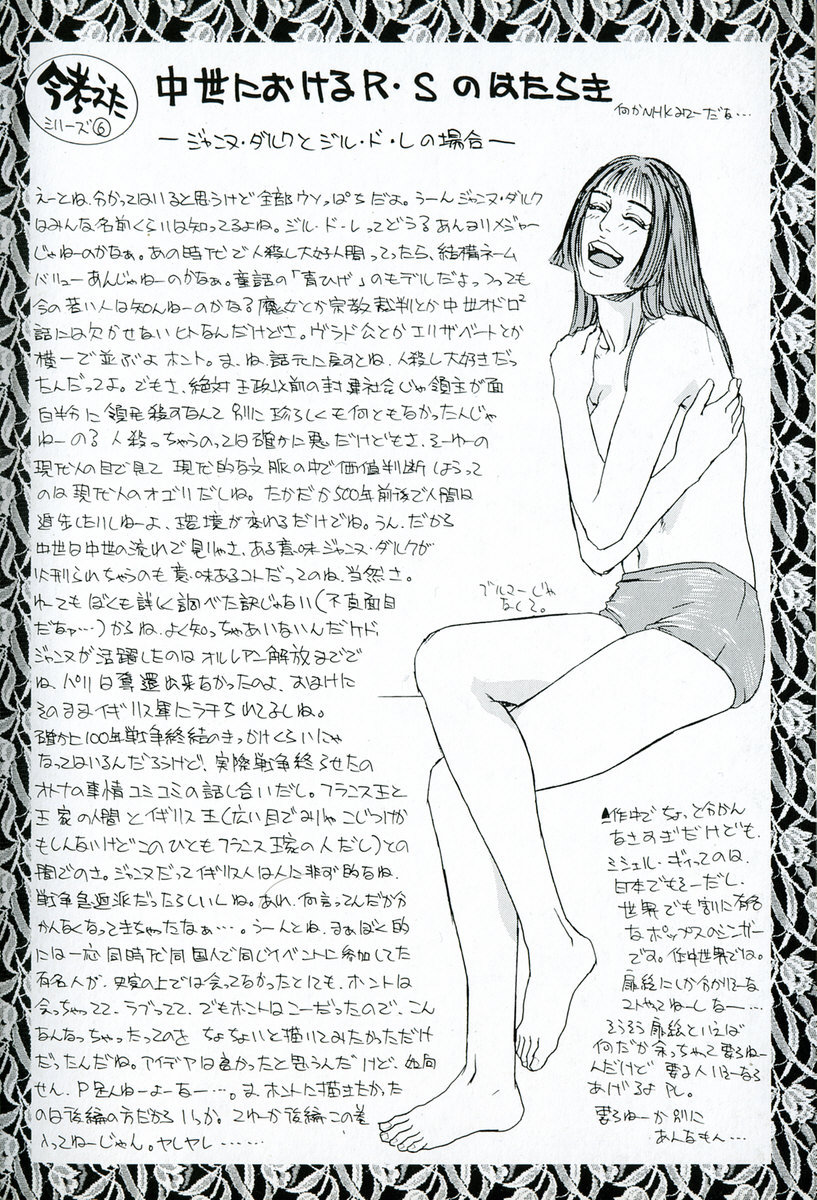 今考えた
シリーズ⑥
中世におけるR・Sのはたらき
何かNHKみてーだな…
─ジャンヌ・ダルクとジル・ド・レの場合─
えーとね、分かってはいると思うけど全部ウソっぱちだよ。うーんジャンヌ・ダルク
はみんな名前くらいは知ってるよね。ジル・ド・レってどうなあんまりメジャー
じゃねーのかなぁ。あの時代で人殺し大好人間ってったら、結構ネーム
バリューあんじゃねーのかなぁ。童話の「青ひげ」のモデルだよっつっても
今の若い人は知んねーのかなる魔女とか宗教裁判とか中世オドロ²
話には欠かせないヒトなんだけどさ。ヴラド公とかエリザベートとか
横一で並ぶよホント。ま、ね、話元に戻すとね、人殺し大好きだっ
たんだってよ。でもさ、絶対王政以前の封建社会じゃ領主が面
白半分に領民殺すなんて別に珍らしくも何ともなかったんじゃ
ねーのる人殺っちゃうのっては確かに悪だけどもさ、そーゆーの
現代人の目で見て現代的な文脈の中で価値判断しようって
のは現代人のオゴリだしね。たかだか500年前後で人間は
進歩したりしねーよ、環境が変わるだけでね。うん、だから
中世は中世の流れで見りゃさ、ある意味ジャンヌ・ダルクが
火刑られちゃうのも意味あるコトだってのね、当然さ。
わーてもぼくも詳しく調べた訳じゃない(不真面目
だなァ…)からね、よく知っちゃあいないんだケド
ジャンヌが活躍したのはオルレアン解放までで
ね、パリは奪還出来なかったのよ、おまけに
そのままイギリス軍にラチられてるしね。
確かに100年戦争終結のきっかけくらいにゃ
なってはいるんだろうけど、実際戦争終らせたの
オトナの事情コミコミの話し合いだし。フランス王と
王家の人間とイギリス王(広い目でみりゃこじつけか
もしんないけどこのひともフランス王家の人だし)との
間でのさ。ジャンヌだってイギリス人は人に非ず的なね、
戦争急進派だったらしいしね。あれ、何言ってんだか分
かんなくなってきちゃったなぁ…。うーんとね、まぁぼく的
には一応同時代同国人で同じイベントに参加してた
有名人が、史実の上では会ってなかったとしても、ホントは
会っちゃってて、ラブってて、でもホントはこーだったので、こん
なんなっちゃったってのをちょちょいと描いてみたかっただけ
だったんだね。アイデアは良かったと思うんだけど、如何
せん、P足んねーよーなー…。ま、ホントに描きたかった
のは後編の方だからいっか。てゆーか後編この巻
入ってねーじゃん。ヤレヤレ……
ブルマーじゃ
なくて。
▲作中でちょっと分かん
なさすぎだけども、
ミシェル・ギィってのは、
日本でもそーだし、
世界でも割に有名
なポップスのシンガー
です。作中世界では。
扉絵にしか分かりそーな
コトやってねーしなー…
そうそう扉絵といえば
何だか余っちゃって要らねー
んだけど要る人いるなら
あげるよPL。
要らねーか別に
あんなもん…